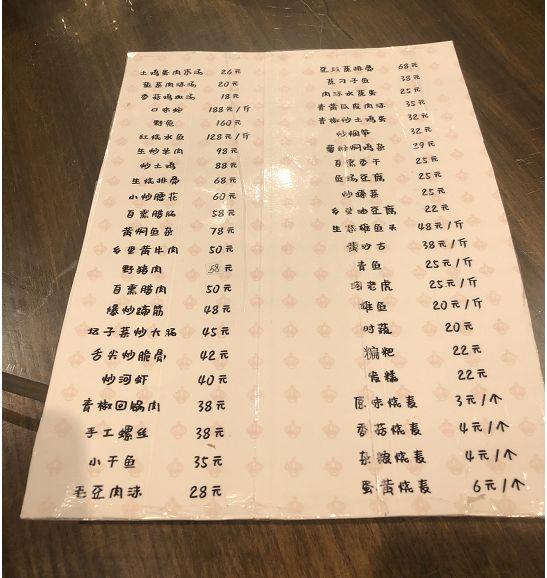 土鸡蛋肉汆汤 26元
韭菜肉沫汤 20元
香菇鸡血汤 18元
口味蛇 188元/斤
野兔 160元
红烧水鱼 128元/斤
生炒羊肉 98元
炒土鸡 88元
生烧排骨 68元
小炒腰花 60元
百熏腊肠 58元
黄焖鱼杂 78元
乡里黄牛肉 50元
野猪肉 58元
百熏腊肉 50元
爆炒蹄筋 48元
坛子菜炒大肠 45元
舌尖炒脆骨 42元
炒河虾 40元
青椒回锅肉 38元
手工螺丝 38元
小干鱼 35元
毛豆肉沫 28元
豆豉蒸排骨 68元
蒸刁子鱼 38元
肉沫水蒸蛋 25元
青黄瓜皮肉沫 35元
青椒炒土鸡蛋 32元
炒烟笋 32元
焖鸡杂 29元
百熏香干 25元
鱼汤豆腐 25元
炒臊菜 25元
乡里油豆腐 22元
生蒸雄鱼头 48元/斤
黄沙古 38元/斤
青鱼 25元/斤
淘老虎 25元/斤
雄鱼 20元/斤
时蔬 20元
糄粑 22元
发糕 22元
原味烧麦 3元/个
香菇烧麦 4元/个
杂粮烧麦 4元/个
蛋黄烧麦 6元/个